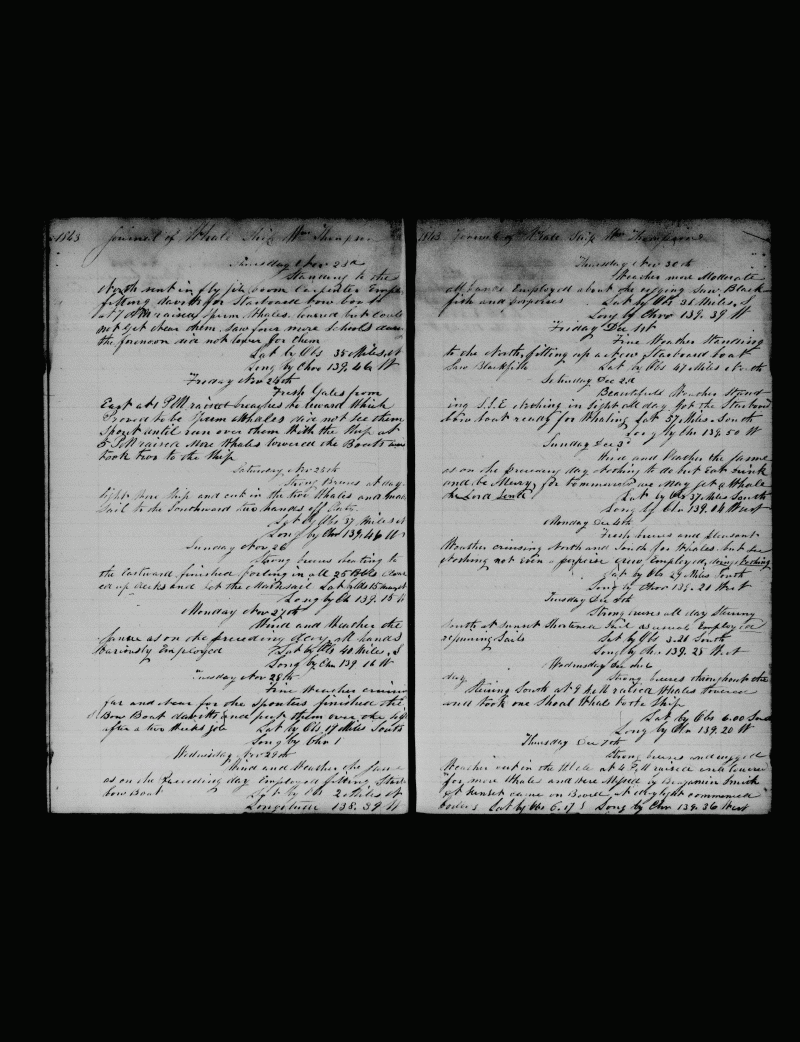 1843 Journal of Whale Ship Wm Thompson
Thursday Nov 23d
Standing to the
North sent in fly jib boom Carpenter Employ
fitting davits for Starboard bow boat
at 7 AM raised Sperm Whales lowered but could
not get near them. Saw four more Schools during
the forenoon did not lower for them
Lat by Obs 35 Miles
Long by Chro 139.46 W
Friday Nov 24th
Fresh Gales from
East at 1 PM raised breaches to leward Which
Proved to be Sperm Whales did not see them
Spout until run over them With the Ship at
5 PM raised More Whales lowered the Boats
took two to the Ship
Saturday Nov 25th
Strong Breeses at day
light Wore Ship and cut in the two Whales and made
Sail to the Southward two hands off duty
Lat by Obs 37 Miles
Long by Chro 139.46 W
Sunday Nov 26
Strong breeses beating to
the Eastward finished boiling in all 25 Bbls clean
ed up decks and Set the Mainsail Lat by Obs 15 Miles
Long by Ch 139.15 W
Monday Nov 27th
Wind and Weather the
Same as on the preceeding day all hands
Variously Employed Lat by Obs 40 Miles S
Long by Chro 139.16 W
Tuesday Nov 28th
Fine Weather cruising
far and near for the Spouters finished the
Bow Boat davitts and put them over the
after a two Weeks job Lat by Obs 17 Miles South
Long by Chro
Wednesday Nov 29th
Wind and Weather the Same
as on the Preceeding day Employed fitting Starb
bow Boat Lat by Obs 2 Miles
Longitude 138.39 W
1843 Journal of Whale Ship Wm Thompson
Thursday Nov 30th
Weather more Moderate
all hands Employed about the rigging Saw Black
fish and porpoises Lat by Obs 36 Miles S
Long by Chro 139.39 W
Friday Dec 1st
Fine Weather Standing
to the North fitting up a new Starboard boat
Saw Blackfish Lat by Obs 47 Miles North
Saturday Dec 2d
Beautifull Weather Stand
ing S.S.E Nothing in Sight all day Got the Starboard
Bow boat ready for Whaling Lat 57 Miles South
Long by Chr 139.50 W
Sunday Dec 3d
Wind and Weather the Same
as on the preceeding day Nothing to do but Eat drink
and be Merry for tommorrow we May get a Whale
the Lord Send Lat by Obs 37 Miles South
Long by Chro 139.04 West
Monday Dec 4th
Fresh breeses and pleasant
Weather cruising North and South for Whales but See
Nothing not Even a porpoise Crew Employed doing Nothing
Lat by Obs 29 Miles South
Long by Chro 139.20 West
Tuesday Dec 5th
Strong breeses all day Steering
South at Sunset Shortened Sail as usual Employed
repairing Sails Lat by Obs 3.20 South
Long by Chr. 139.25 West
Wednesday Dec 6
Strong breeses throughout the
day
Steering South at 9 AM raised Whales lowered
and took one Shoal Whale to the Ship
Lat by Obs 6.00 South
Long by Chr 139.20 West
Thursday Dec 7th
Strong breeses and rugged
Weather cut in the Whale at 4 PM raised and lowered
for more Whales and Were by Benjamin
at Sunset came on Board, at daylight commenced
boiling Lat by Obs 6.17 S Long by Chro 139.36 West